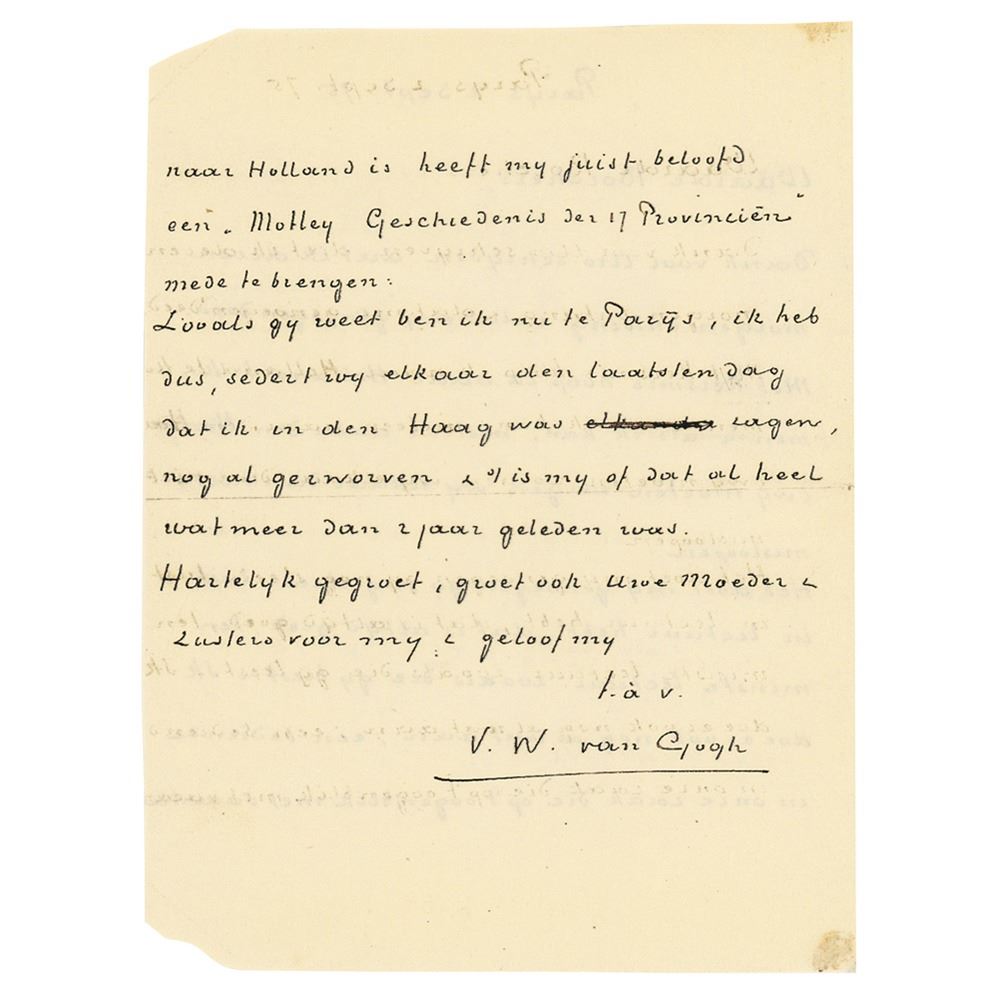 naar Holland is heeft my juist beloofd
een „Motley Geschiedenis der 17 Provinciën”
mede te brengen.
Zooals gy weet ben ik nu te Parijs, ik heb
dus, sedert wy elkaar den laatsten dag
dat ik in den Haag was elkander zagen,
nog al gezworven & 't is my of dat al heel
wat meer dan 2 jaar geleden was.
Hartelyk gegroet, groet ook Uwe Moeder &
Zusters voor my & geloof my
t. à v.
V. W. van Gogh